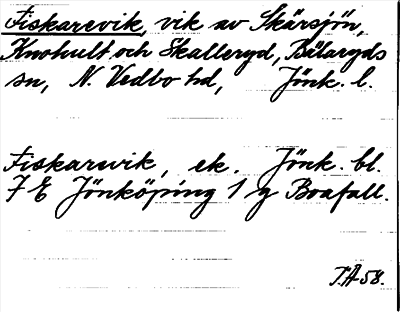 Fiskarevik, vik av Skärsjön,
Knohult och Skalleryd, Bälaryds
sn, N. Vedbo hd, Jönk. l.
Fiskarevik, ek. Jönk. bl.
7 E Jönköping 1 g Boafall.
T.A 58.